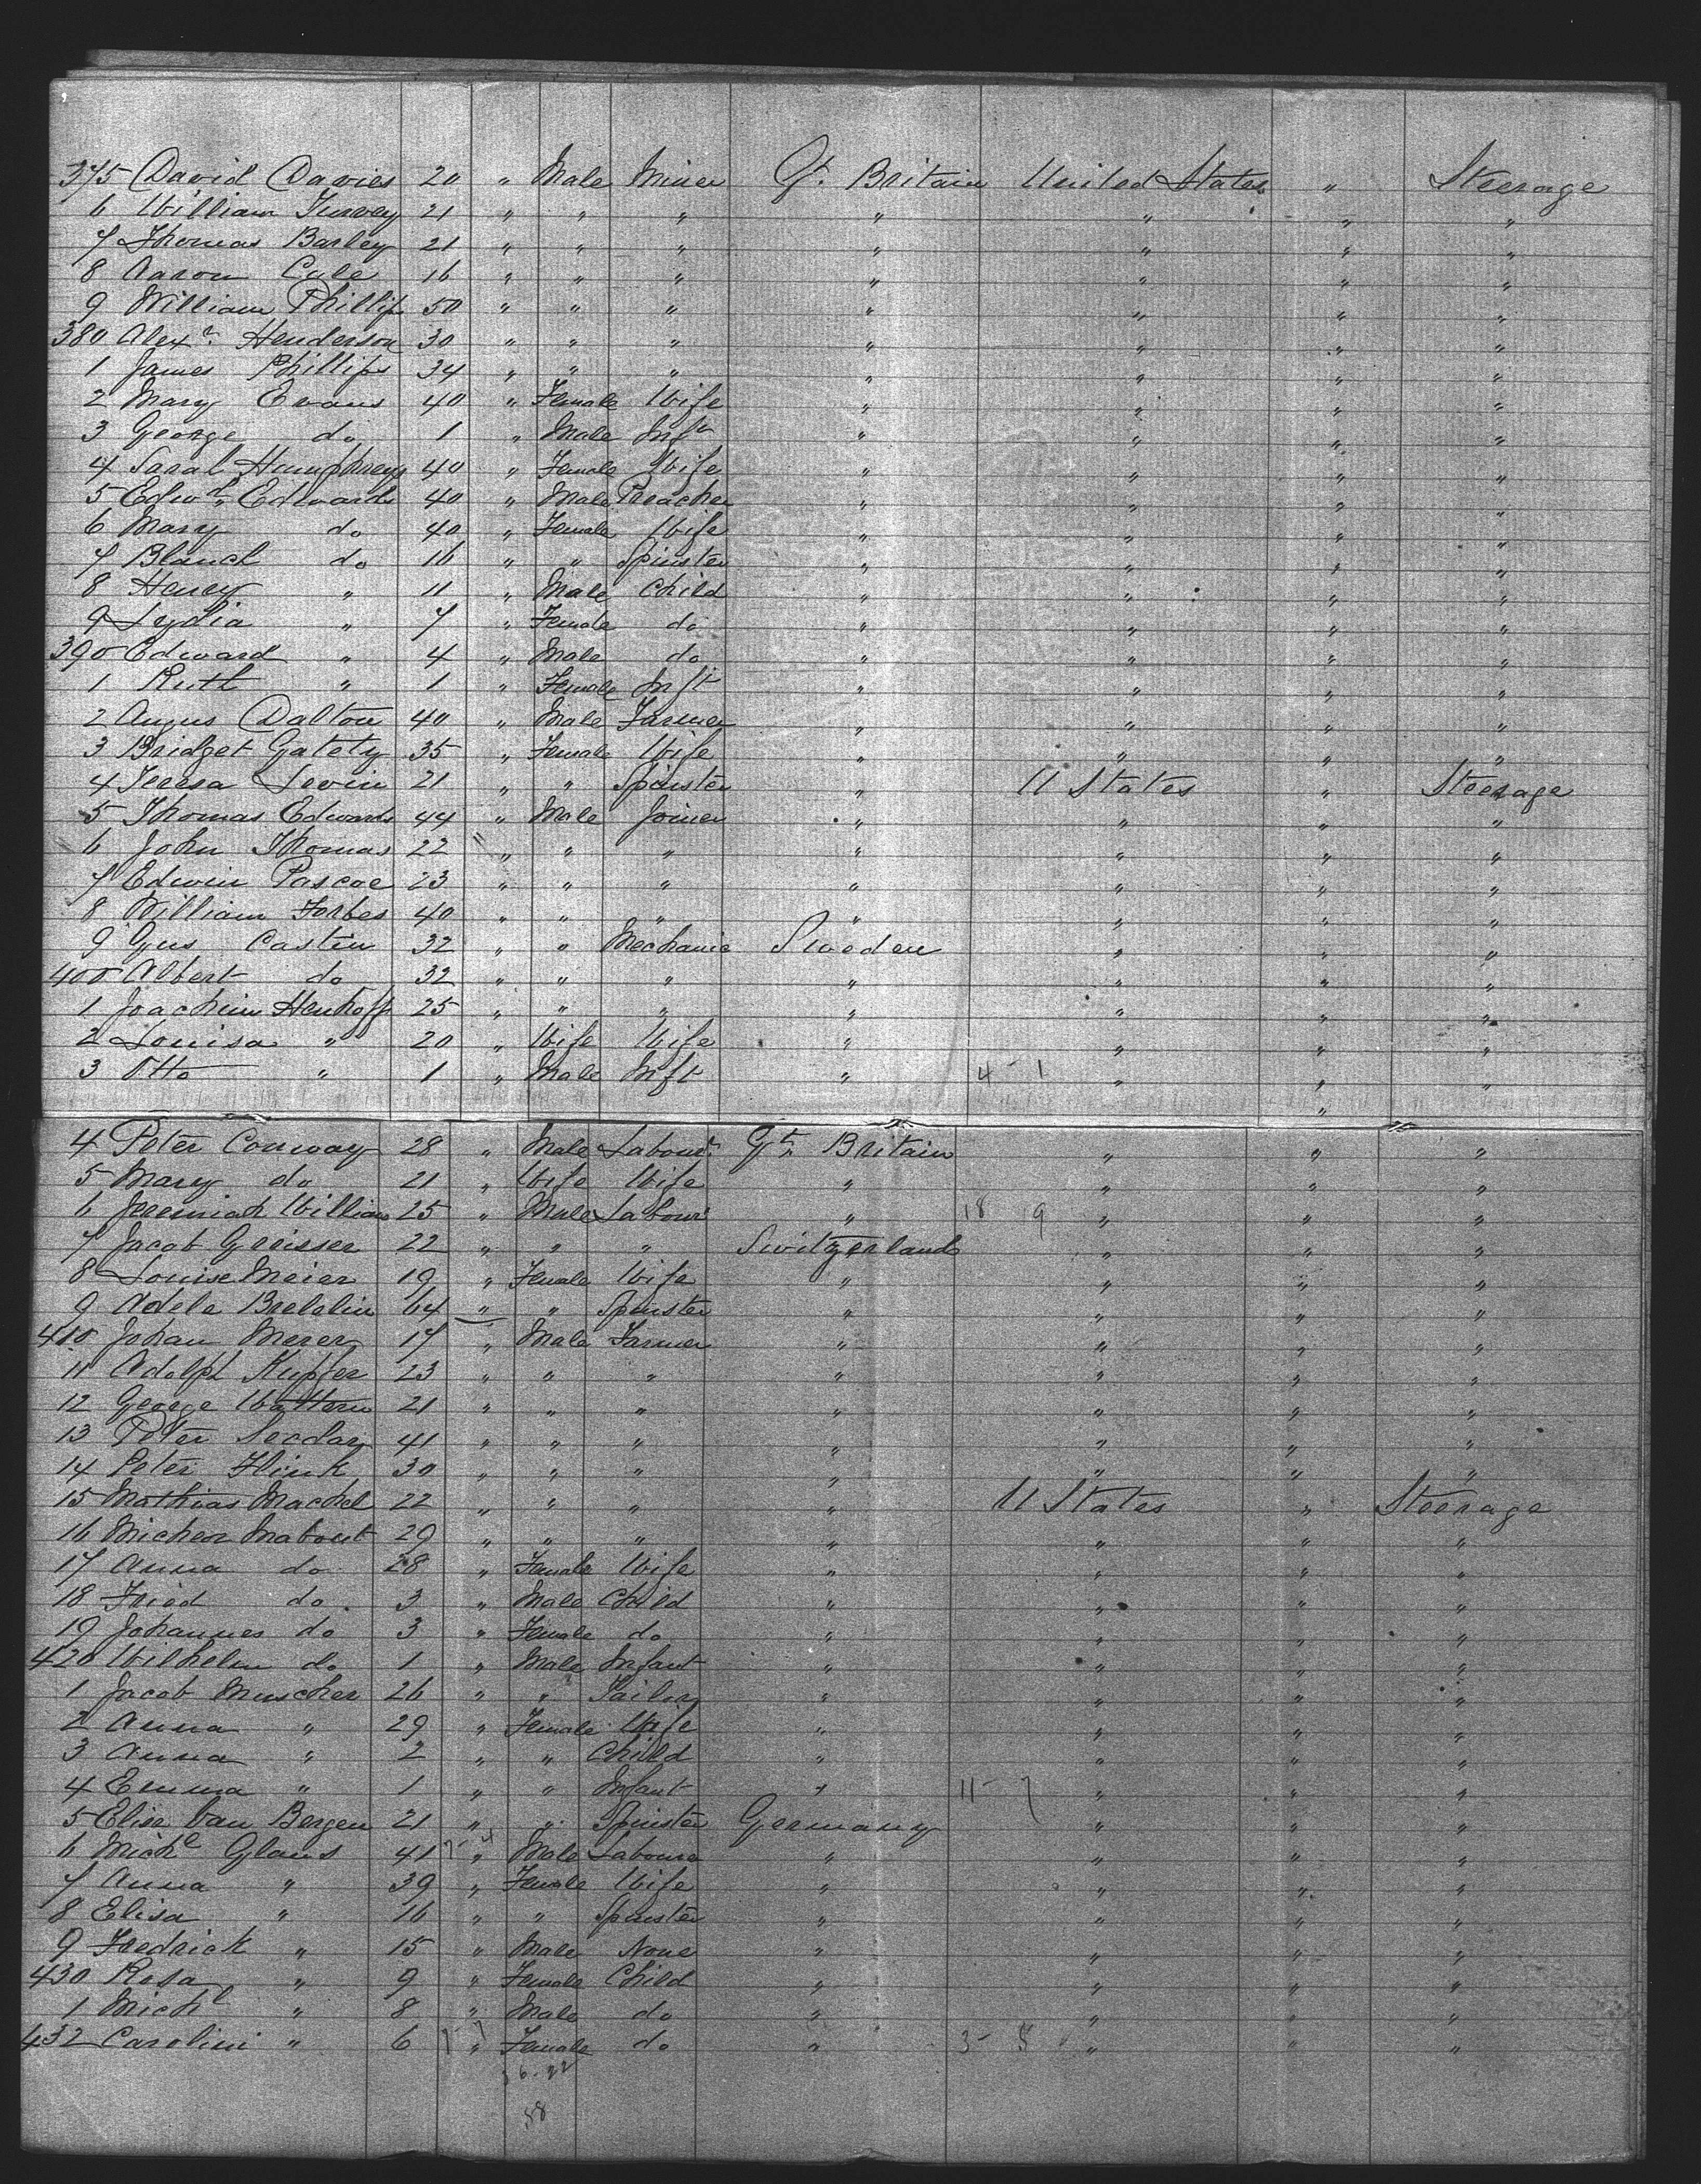 375 David Davies 20 " Male Miner Gt. Britain United States " Steerage
6 William Turvey 21 " " " " " " "
7 Thomas Barley 21 " " " " " " "
8 Aaron Cule 16 " " " " " " "
9 William Phillips 50 " " " " " " "
380 Alexr. Henderson 30 " " " " " " "
1 James Phillips 34 " " " " " " "
2 Mary Evans 40 " Female Wife " " " "
3 George do 1 " Male Inft " " " "
4 Sarah Humphreys 40 " Female Wife " " " "
5 Edwd. Edwards 40 " Male Preacher " " " "
6 Mary do 40 " Female Wife " " " "
7 Blanch do 16 " " Spinster " " " "
8 Henry " 11 " Male Child " " " "
9 Lydia " 7 " Female do " " " "
390 Edward " 4 " Male do " " " "
1 Ruth " 1 " Female Inft " " " "
2 Angus Dalton 40 " Male Farmer " " " "
3 Bridget Gatety 35 " Female Wife " " " "
4 Teresa Levin 21 " " Spinster " U States " Steerage
5 Thomas Edwards 44 " Male Joiner " " " "
6 John Thomas 22 " " " " " " "
7 Edwin Pascoe 23 " " " " " " "
8 William Forbes 40 " " " " " " "
9 Gus Castin 32 " " Mechanic Sweden " " "
400 Albert do 32 " " " " " " "
1 Joachim Henhoff 25 " " " " " " "
2 Louisa " 20 " Wife Wife " " " "
3 Otto " 1 " Male Inft " 4 - 1 " " "
"
4 Peter Conway 28 " Male Labourr. Gt. Britain " " "
5 Mary do 21 " Wife Wife " " " "
6 Jeremiah Williams 25 " Male Labourr " 18 9 " " "
7 Jacob Greisser 22 " " " Switzerland " " "
8 Louise Meier 19 " Female Wife " " " "
9 Adele 64 " " Spinster " " " "
410 Johan Merer 17 " Male Farmer " " " "
11 Adolph Kupfer 23 " " " " " " "
12 George 21 " " " " " " "
13 Peter 41 " " " " " " "
14 Peter Flink 30 " " " " " " "
15 Mathias Machel 22 " " " " U States " Steerage
16 Mabout 29 " " " " " " "
17 Anna do 28 " Female Wife " " " "
18 Fried do. 3 " Male Child " " " "
19 Johannes do 3 " Female do " " " "
420 Wilhelm do 1 " Male Infant " " " "
1 Jacob Muscher 26 " " Tailor " " " "
2 Anna " 29 " Female Wife " " " "
3 Anna " 2 " " Child " " " "
4 Emma " 1 " " Infant " 11 - 7 " " "
5 Elise Van Bergen 21 " " Spinster Germany " " "
6 Michl Glaus 41 " Male Labourer " " " "
7 Anna " 39 " Female Wife " " " "
8 Elisa " 16 " " Spinster " " " "
9 Fredrick " 15 " Male None " " " "
430 Rosa " 9 " Female Child " " " "
1 Michl " 8 " Male do " " " "
432 Carolini " 6 " Female do " 3 - 5 " " "
36-22
58